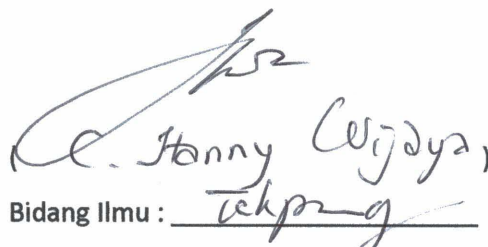 (C. Hanny Wijaya)
Bidang Ilmu : Tekpang